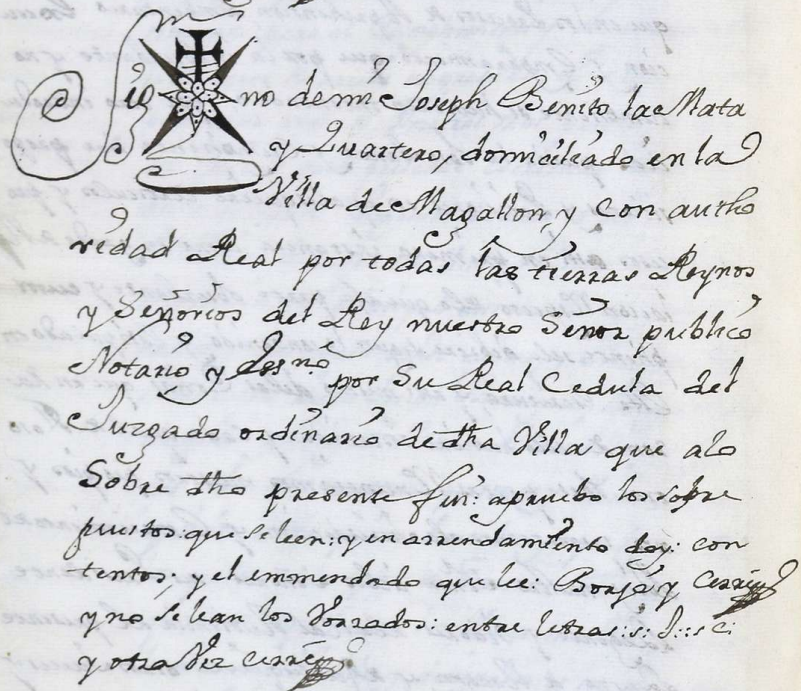 Sig no de mi Joseph Benito la Mata
y Quartero, domiciliado en la
Villa de Magallon, y con autho
ridad Real por todas las tierras Reynos
y Señorios del Rey nuestro Señor publico
Notario y Essno por Su Real Cedula del
Juzgado ordinario de dha Villa que alo
Sobre dho presente fui: apruebo los sobre
puestos: que se leen: y en arrendamiento doy: con
tentos; y el emmendado que lee: Borja y cerre
y no se lean los Vorrados: entre letras: s:
y otra Vez cerre